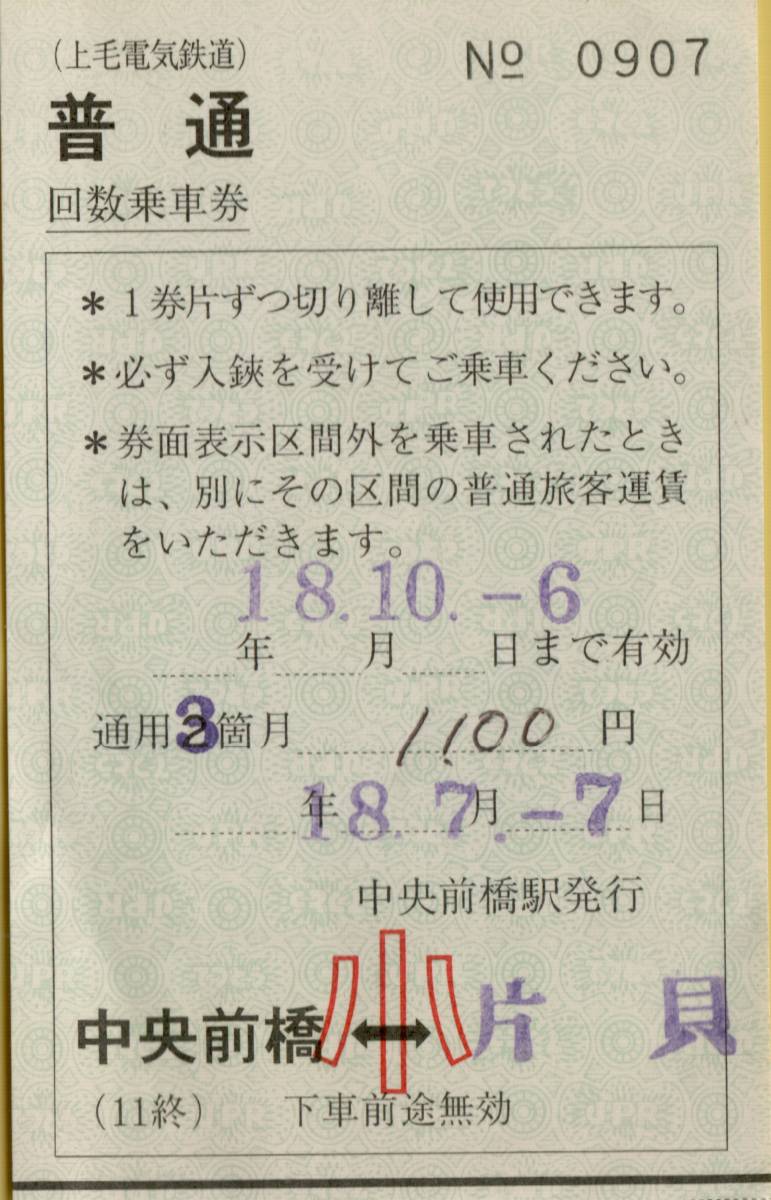 (上毛電気鉄道)
No 0907
普通
回数乗車券
* 1券片ずつ切り離して使用できます。
* 必ず入鋏を受けてご乗車ください。
* 券面表示区間外を乗車されたとき
は、別にその区間の普通旅客運賃
をいただきます。
18.10.-6
年 月 日まで有効
通用3箇月 1,100円
18.7.-7
年 月 日
中央前橋駅発行
小
中央前橋↔片貝
(11終) 下車前途無効